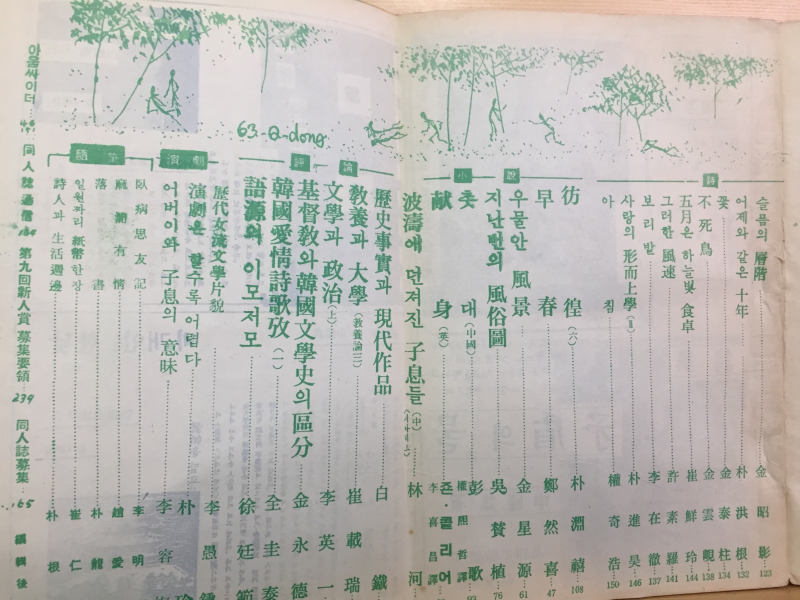 63 Q-dong
詩
슬픔의 層階 金昭影 123
어제와 같은 十年 朴洪根 132
꽃 金泰柱 134
不死鳥 金雲觀 138
五月은 하늘빛 食卓 崔鮮玲 144
그러한 風速 許素羅 141
보리밭 李在徹 137
사랑의 形而上學(Ⅱ) 朴進昊 146
아침 權奇浩 150
小說
彷徨(六) 朴淵禧 108
早春 鄭然喜 47
우물안 風景 金星源 61
지난번의 風俗圖 吳賛植 76
촛대(中國) 彭歌
權凞哲譯 93
献身(英) 죤·콜리어
李喜昌譯
波濤에 던져진 子息들(中) 林河
評論
歷史事實과 現代作品 白鐵
敎養과 大學(敎養論三) 崔載瑞
文學과 政治(上) 李英一
基督敎와 韓國文學史의 區分 金永德
韓國愛情詩歌攷(一) 全圭泰
語源의 이모저모 徐廷範
歷代女流文學片貌 李愚鍾
演劇
演劇은 할수록 어렵다 朴珍
어버이와 子息의 意味 李容
隨筆
臥病思友記 李明
麻潮有情 趙愛
落書 朴龍
일원짜리 紙幣 한장 崔仁
詩人과 生活週邊 朴根
아웃싸이더 同人誌通信 第九回新人賞 募集要領 239 同人誌募集 165 編輯後